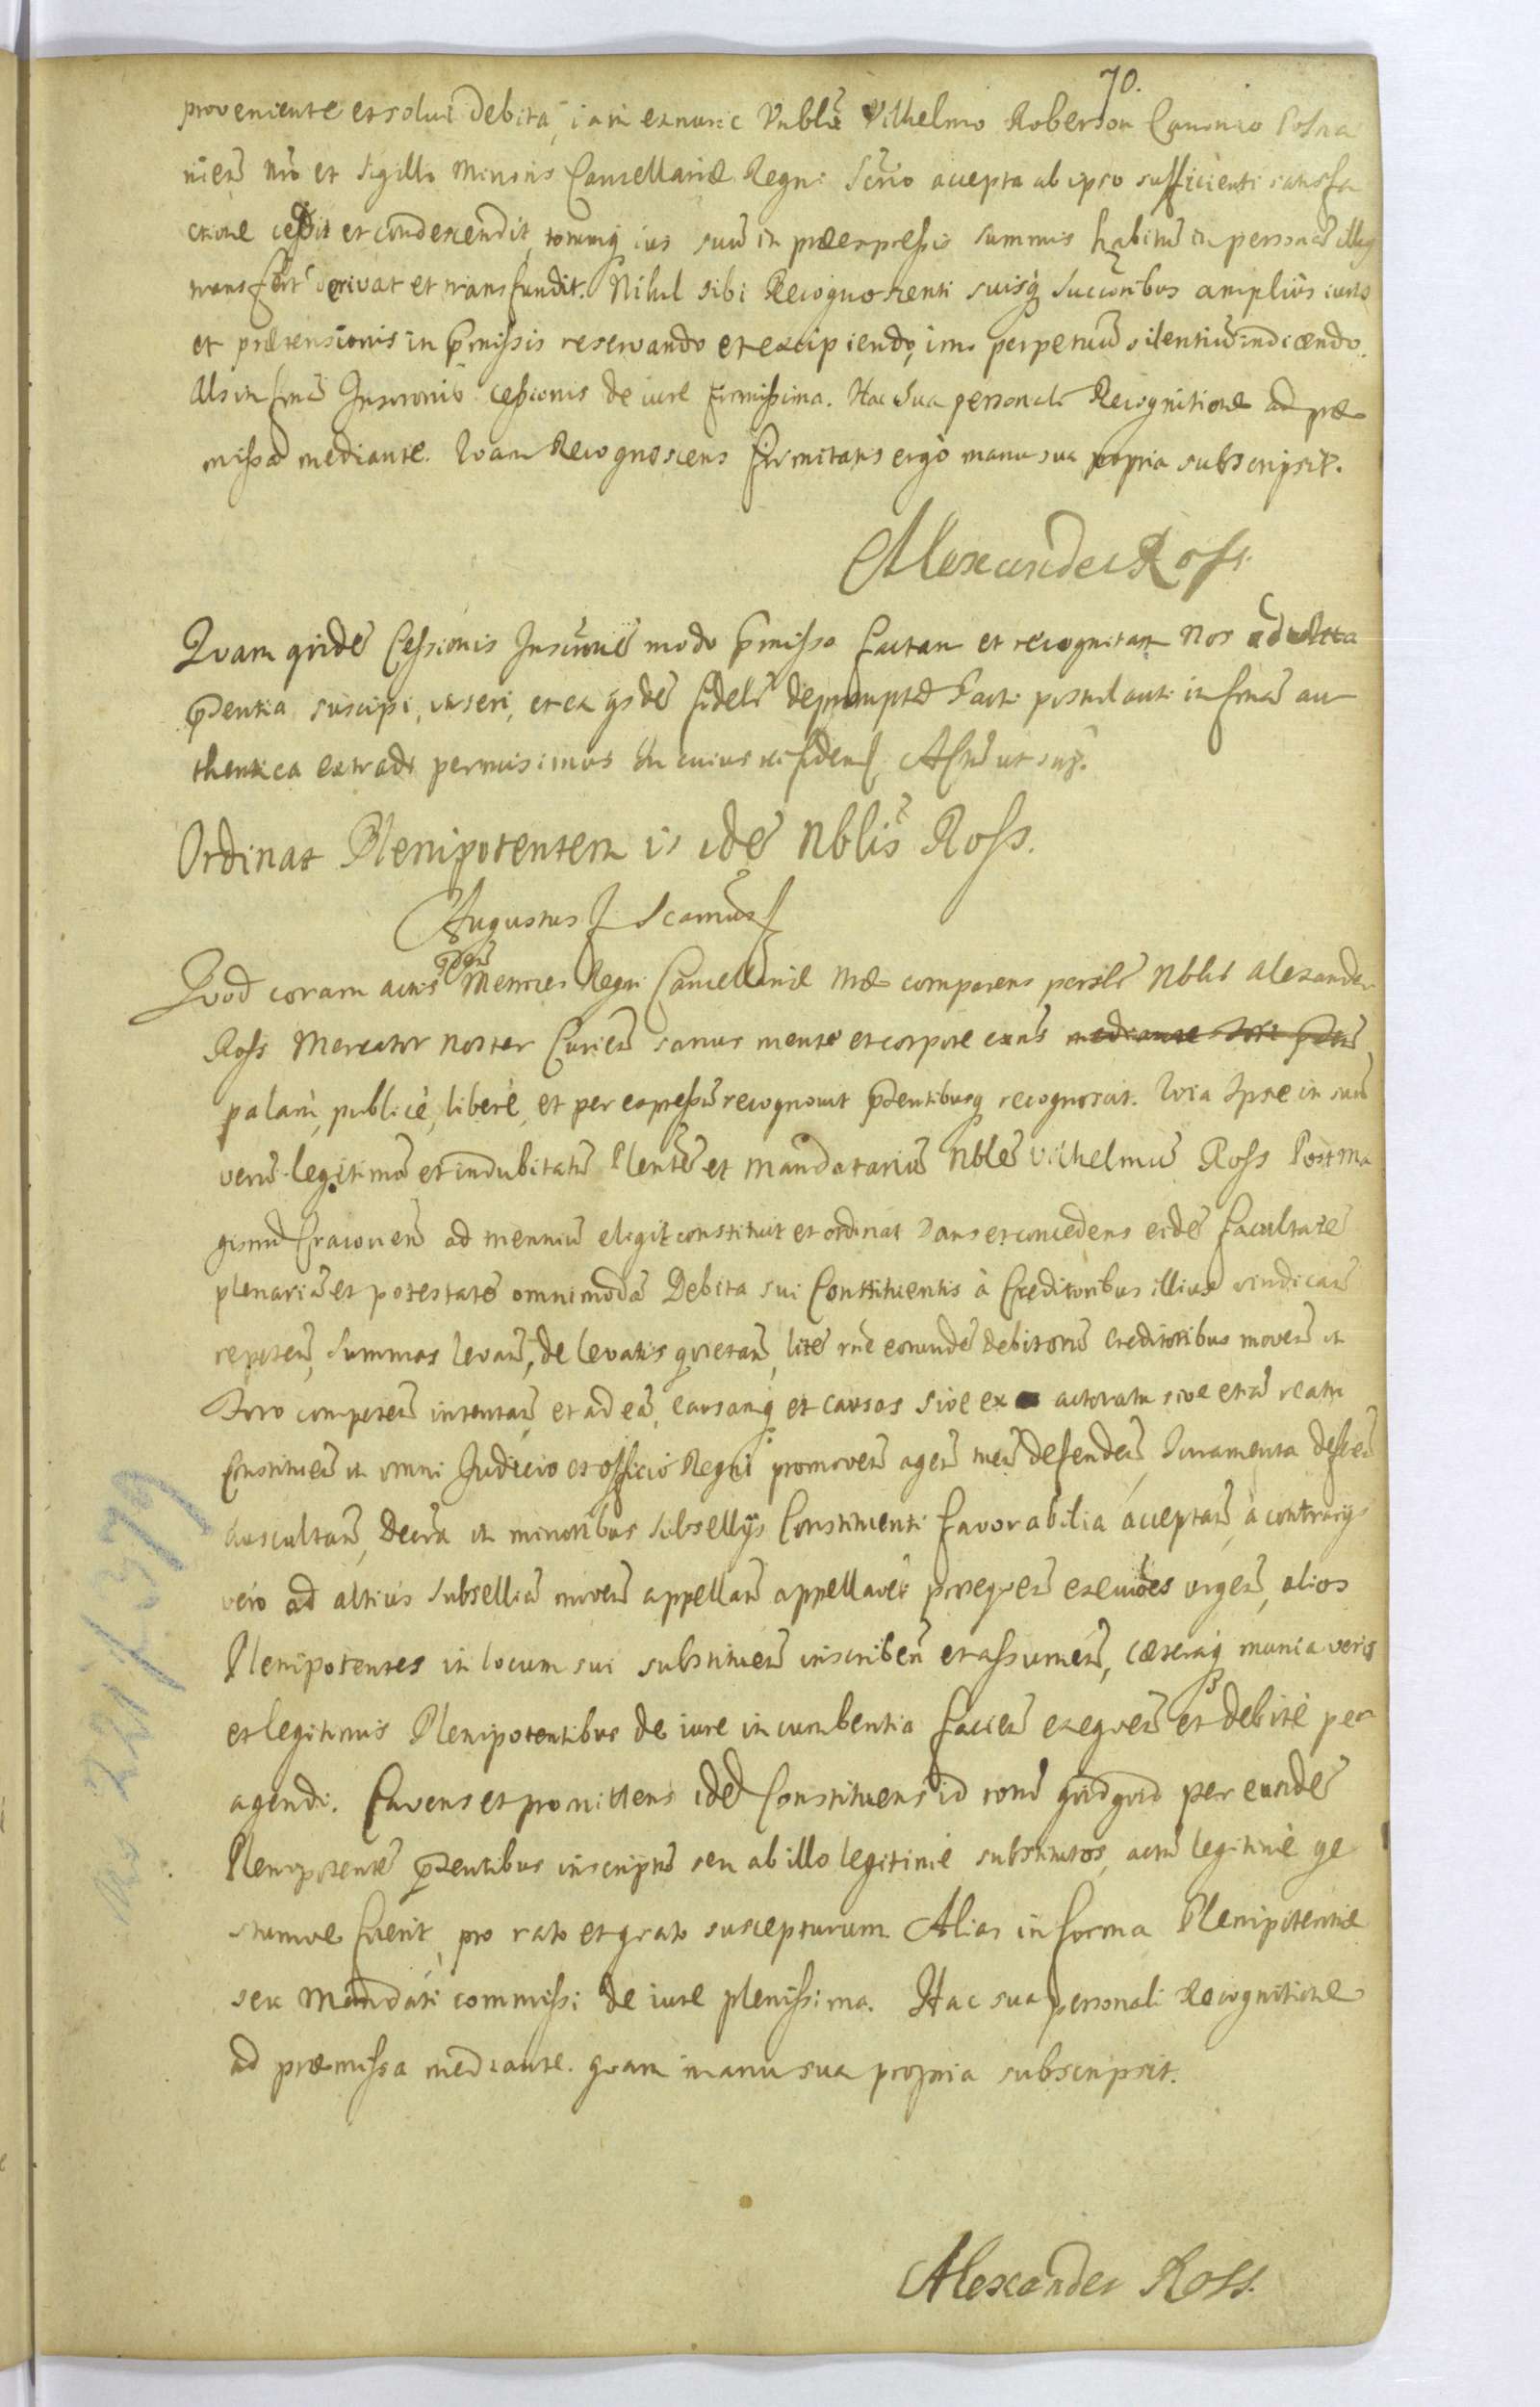 70.
proveniente et solui debita, iam ex nunc Vnbli Vilhelmo Roberson Canonico Posna
nień nro et Sigilli Minoris Cancellariæ Regni Scrio accepta ab ipso sufficienti satisfa
ctione cessit et condescendit, totumq ius suū in præexpressis summis habitū in personā illiq
transfert derivat et transfundit. Nihil sibi Recognoscenti suisq Succoribus amplius iuris
et prætensionis in pmissis reservando et excipiendo, imo perpetuū silentiū indicendo.
Als in formā Inscronis cessionis de iure firmissima. Hac Sua personali Recognitione ad præ
missa mediante. Quam Recognoscens firmitatis ergò manu sua propria subscripsit.
Alexander Ross.
Quam qvidē Cessionis Inscrionē modo pmisso factam et recognitam Nos ad Acta
pdentia suscipi, inseri, et ex ijsdē fideli depromptā Parti postulanti in formā au
thentica extradi permisimus In cuius rei fidem Actū ut sup.
Ordinat Plenipotentem is idē Nblis Ross.
Augustus Scamus
Qvod coram actis pntibus Metrices Regni Cancellariæ Mæ comparens persłr Nblis Alexander
Ross Mercator Noster Curień sanus mente et corpore exńs
palam, publicè, liberè, et per expressū recognovit pdentibusq recognoscit. Qvia Ipse in suū
verū legitimū et indubitatū Plentē et Mandatariū Nblē Vilhelmū Ross Postma
gistrū Cracovień ad mennū elegit constituit et ordinat Dans et concedens eidē facultatē
plenariā et potestatē omnimodā Debita sui Constituentis à Creditoribus illius vindicań
repeteń, Summas levań, de levatis qvietań, litē rne eorundē debitorū Creditoribus moveń in
Foro competeń intentań, et ad eā, causamq et causas sive ex actoratu sive etiā reatu
Constitueń in omni Judicio et officio Regni promoveń ageń tueń defendeń, Juramenta defeń
auscultań, Decrta in minoribus Subsellijs Constituenti favorabilia acceptań, à contrarijs
vero ad altius Subselliū moveń appellań appellaōes proseqveń exeuōes urgeń, alios
Plenipotentes in locum sui substitueń inscribeń et assumeń, cæteraq munia veris
et legitimis Plenipotentibus de iure incumbentia facień exeqveń et debitè per
agendi. Cavens et promittens idē Constituens id totū qvidqvid per eundē
Plenipotentē pdentibus inscriptū seu ab illo legitimè substitutos, actū legitimè ge
stumve fuerit, pro rato et grato suscepturum Alias in forma Plenipotentiæ
seu Mandati commissi de iure plenissima. Hac sua personali Recognitione
ad præmissa mediante. qvam manu sua propria subscripsit.
Alexander Ross.